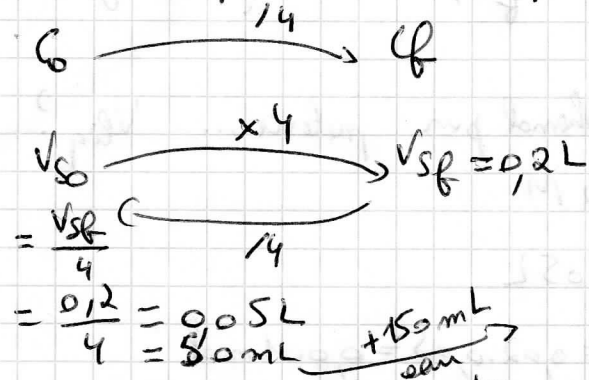 /4
C₀ → Cf
×4
Vs₀ → Vsf = 0,2 L
= Vsf/4
/4
= 0,2/4 = 0,05 L
= 50 mL +150 mL
eau